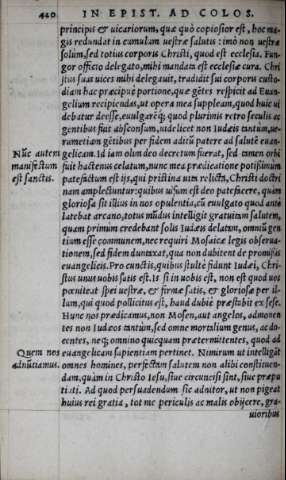 420 IN EPIST. AD COLOS.
principis & uicariorum, quæ quò copiosior est, hoc ma-
gis redundat in cumulum uestræ salutis: imò non uestræ
solùm, sed totius corporis Christi, quod est ecclesia. Fun
gor officio delegato, mihi mandata est ecclesiæ cura. Chri
stus suas uices mihi delegauit, tradidit sui corporis custo-
diam hac præcipuè portione, quæ gẽtes respicit ad Euan-
gelium recipiendas, ut opera mea suppleam, quod huic ui
debatur deesse, euulgarẽq; quod plurimis retro seculis ac
gentibus fuit absconsum, uidelicet non Iudæis tantùm, ue-
rumetiam gẽtibus per fidem aditũ patere ad salutẽ euan-
gelicam. Id iam olim deo decretum fuerat, sed tamen orbi
Nũc autem
fuit hactenus celatum, nunc mea prædicatione potißimùm
manifestum
patefactum est ijs, qui pristina uita relicta, Christi doctri
est sanctis.
nam amplectuntur: quibus uisum est deo patefacere, quàm
gloriosa sit illius in uos opulentia, cũ euulgato quod antè
latebat arcano, totus mũdus intelligit gratuitam salutem,
quam primùm credebant solis Iudæis delatam, omniũ gen
tium esse communem, nec requiri Mosaicæ legis obserua-
tionem, sed fidem duntaxat, qua non dubitent de promißis
euangelicis. Pro cunctis, quibus stultè fidunt Iudæi, Chri-
stus unus uobis satis est. Is si in uobis est, non est quod uos
pœniteat spei uestræ, & firmæ satis, & gloriosæ per il-
lum, qui quod pollicitus est, haud dubiè præstabit ex sese.
Hunc nos prædicamus, non Mosen, aut angelos, admonen
tes non Iudæos tantùm, sed omne mortalium genus, ac do-
centes, neq; omnino quicquam prætermittentes, quod ad
Quem nos
euangelicam sapientiam pertinet. Nimirum ut intelligãt
adnũtiamus.
omnes homines, perfectam salutem non alibi constituen-
dam, quàm in Christo Iesu, siue circuncisi sint, siue præpu
tiati. Ad quod persuadendum sic adnitor, ut non pigeat
huius rei gratia, tot me periculis ac malis obijcere, gra-
uioribus